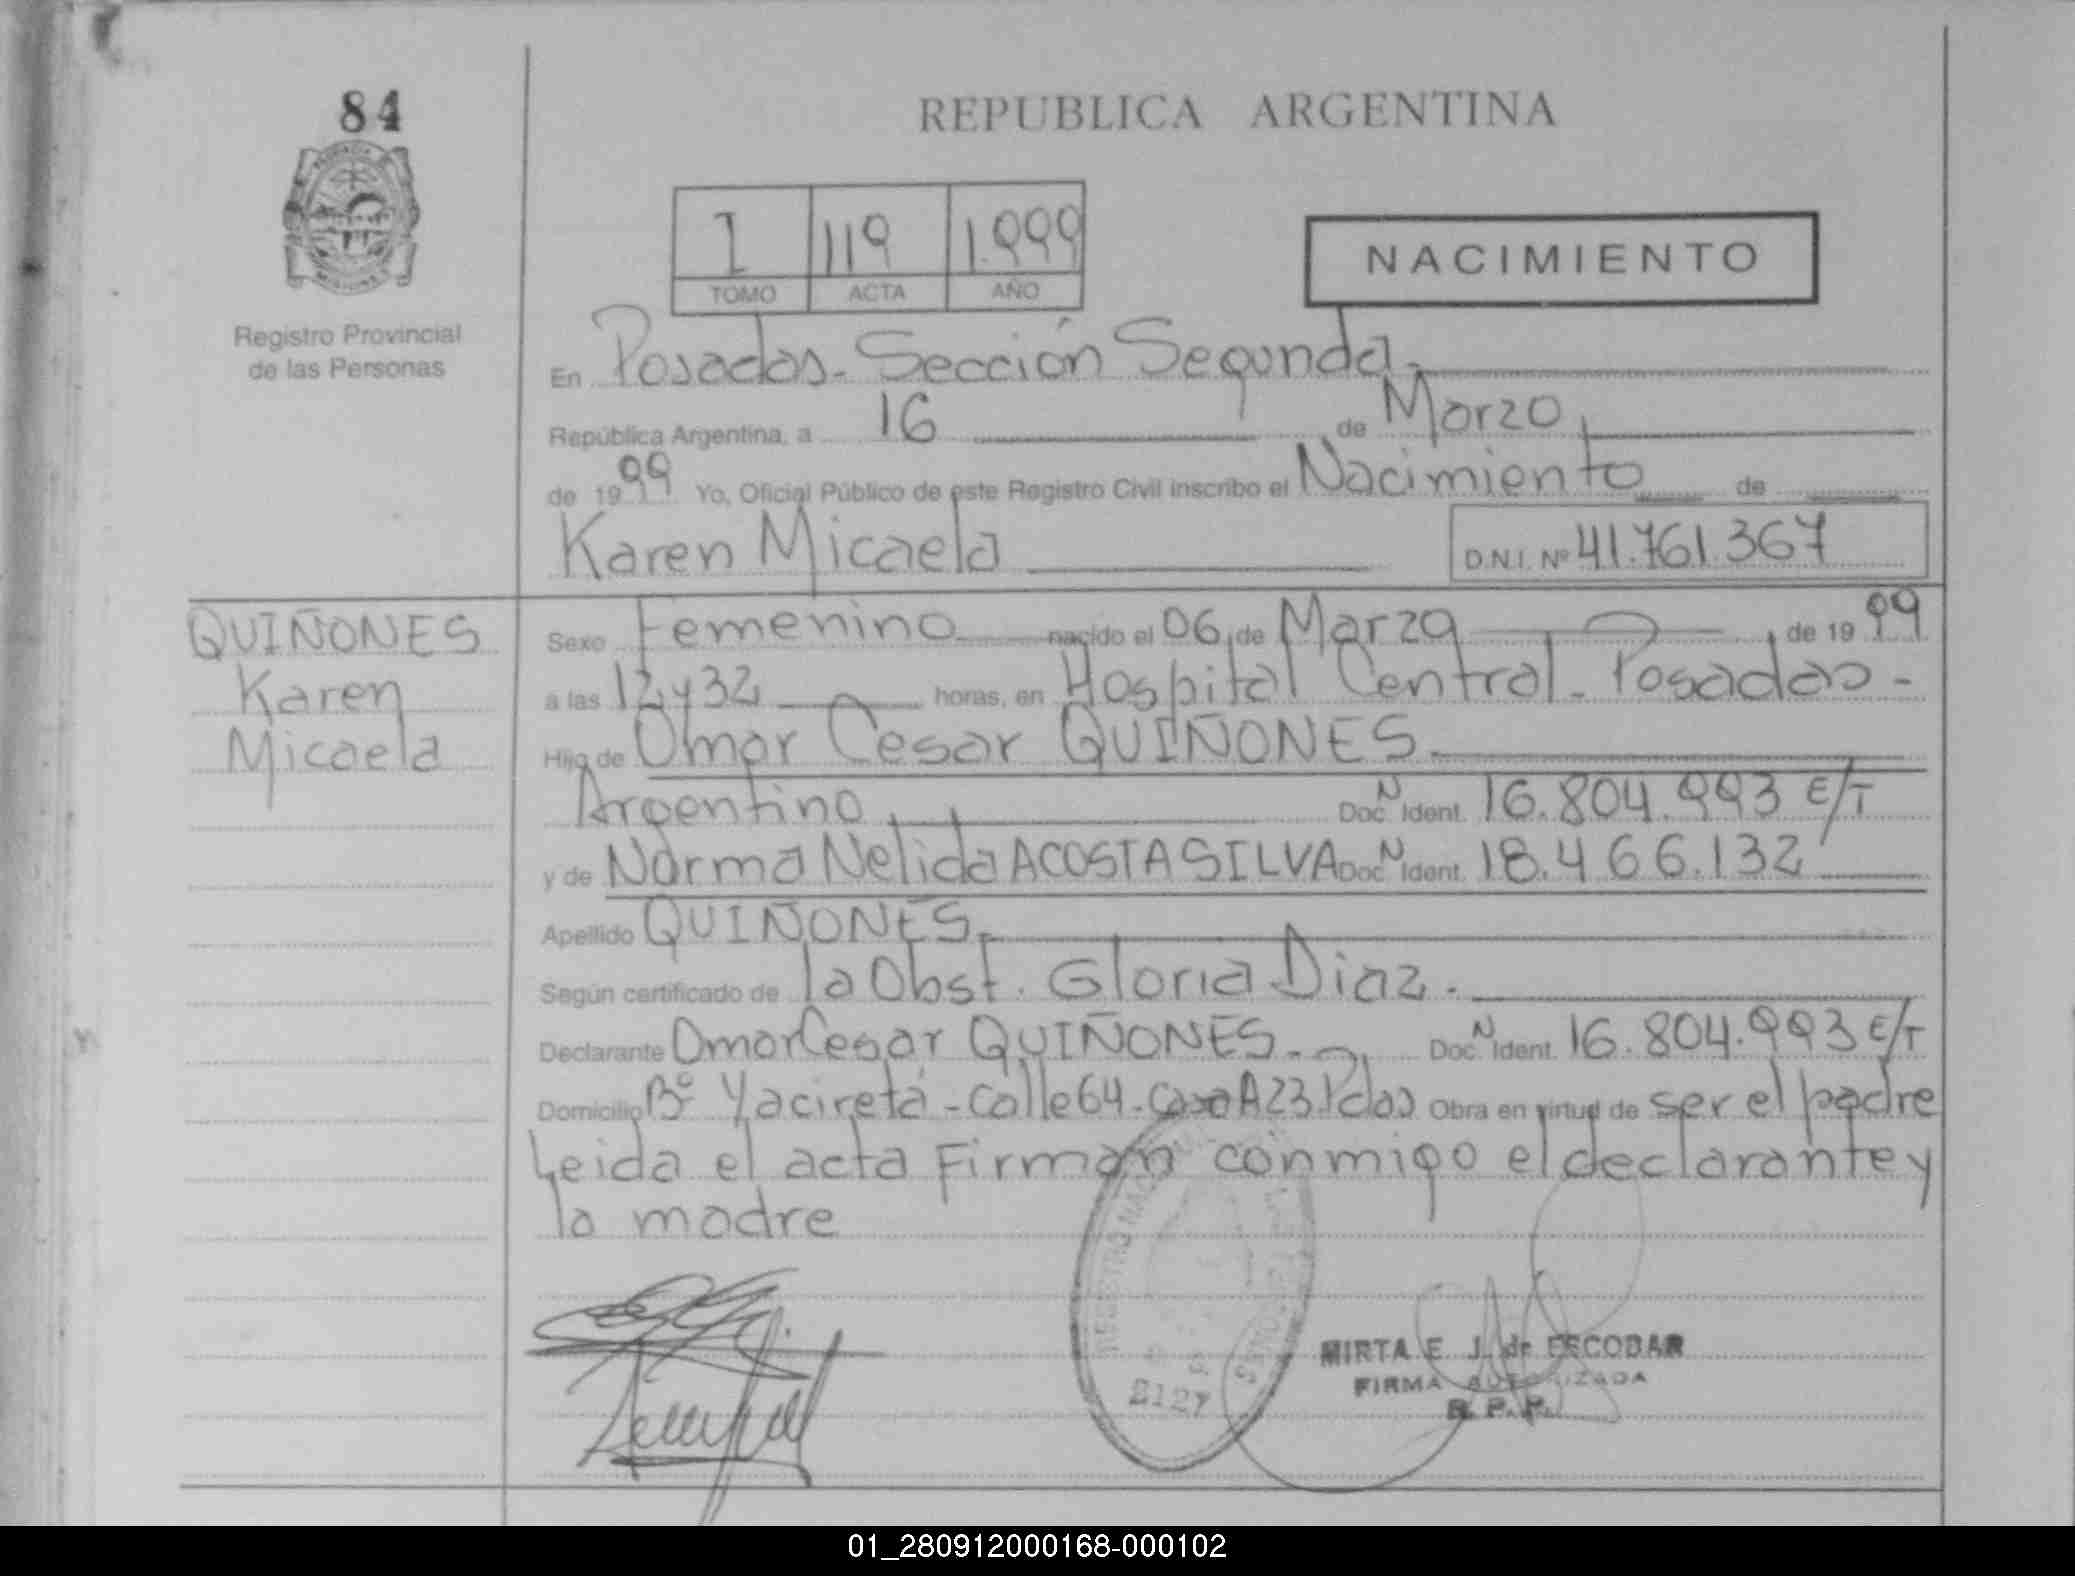 84
REPUBLICA ARGENTINA
1 119 1.999
TOMO ACTA AÑO
NACIMIENTO
Registro Provincial
de las Personas
En Posadas - Sección Segunda -
República Argentina, a 16 de Marzo
de 1999 Yo, Oficial Público de este Registro Civil inscribo el Nacimiento de
Karen Micaela D.N.I. Nº 41.761.367
QUIÑONES
Karen
Micaela
Sexo Femenino nacido el 06 de Marzo de 1999
a las 12 y 32 horas, en Hospital Central - Posadas -
Hijo de Omar Cesar QUIÑONES -
Argentino Doc. N Ident. 16.804.993 E/T
y de Norma Nelida ACOSTA SILVA Doc. N Ident. 18.466.132
Apellido QUIÑONES -
Según certificado de la Obst. Gloria Diaz -
Declarante Omar Cesar QUIÑONES - Doc. N Ident. 16.804.993 E/T
Domicilio Bº Yacireta - Calle 64 - Casa A23 Pdas Obra en virtud de ser el padre
Leida el acta Firman conmigo el declarante y
la madre
MIRTA E. J. de ESCOBAR
FIRMA AUTORIZADA
R. P. P.
2127
01_280912000168-000102